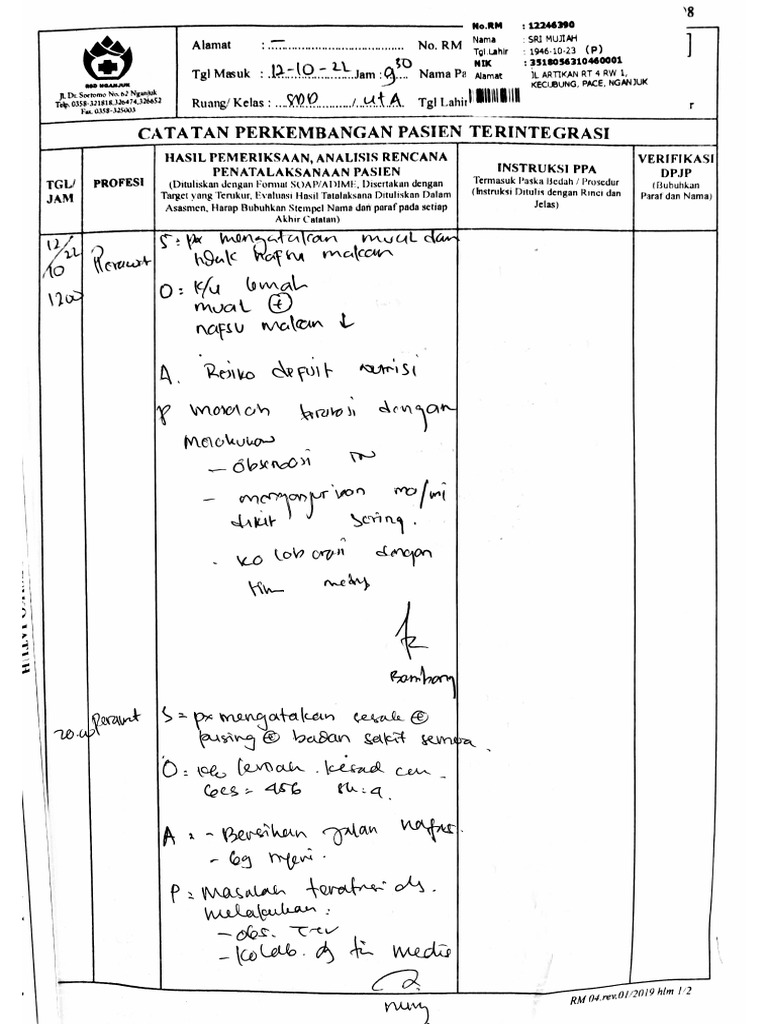 No.RM : 12246390
Nama : SRI MUJIAH
Tgl.Lahir : 1946-10-23 (P)
NIK : 3518056310460001
Alamat JL ARTIKAN RT 4 RW 1,
KECUBUNG, PACE, NGANJUK
RSD NGANJUK
Jl. Dr. Soetomo No. 62 Nganjuk
Telp. 0358-321818,326474,326652
Fax. 0358-325003
Alamat : – No. RM
Tgl Masuk : 12-10-22 Jam : 9 30 Nama Pa
Ruang/ Kelas : / Tgl Lahir
CATATAN PERKEMBANGAN PASIEN TERINTEGRASI
TGL/
JAM
PROFESI
HASIL PEMERIKSAAN, ANALISIS RENCANA
PENATALAKSANAAN PASIEN
(Dituliskan dengan Format SOAP/ADIME, Disertakan dengan
Target yang Terukur, Evaluasi Hasil Tatalaksana Dituliskan Dalam
Asasmen, Harap Bubuhkan Stempel Nama dan paraf pada setiap
Akhir Catatan)
INSTRUKSI PPA
Termasuk Paska Bedah / Prosedur
(Instruksi Ditulis dengan Rinci dan
Jelas)
VERIFIKASI
DPJP
(Bubuhkan
Paraf dan Nama)
12/10 22
1200
Perawat
S : px mengatakan mual dan
tidak nafsu makan
O : K/u lemah
mual (+)
nafsu makan ↓
A. Resiko defisit nutrisi
P masalah teratasi dengan
melakukan
– observasi
– menganjurkan ma/mi
dikit sering.
. kolaborasi dengan
tim medis
Bambang
20.00 Perawat
S = px mengatakan sesak (+)
pusing (+) badan sakit semua.
O : lemah. kesad cm.
GCS = 456
A : - Bersihan jalan nafas.
- gg nyeri.
P = Masalah teratasi dg.
melakukan :
- obs. TTV
- Kolab. dg tim medis
RM 04.rev.01/2019 hlm 1/2